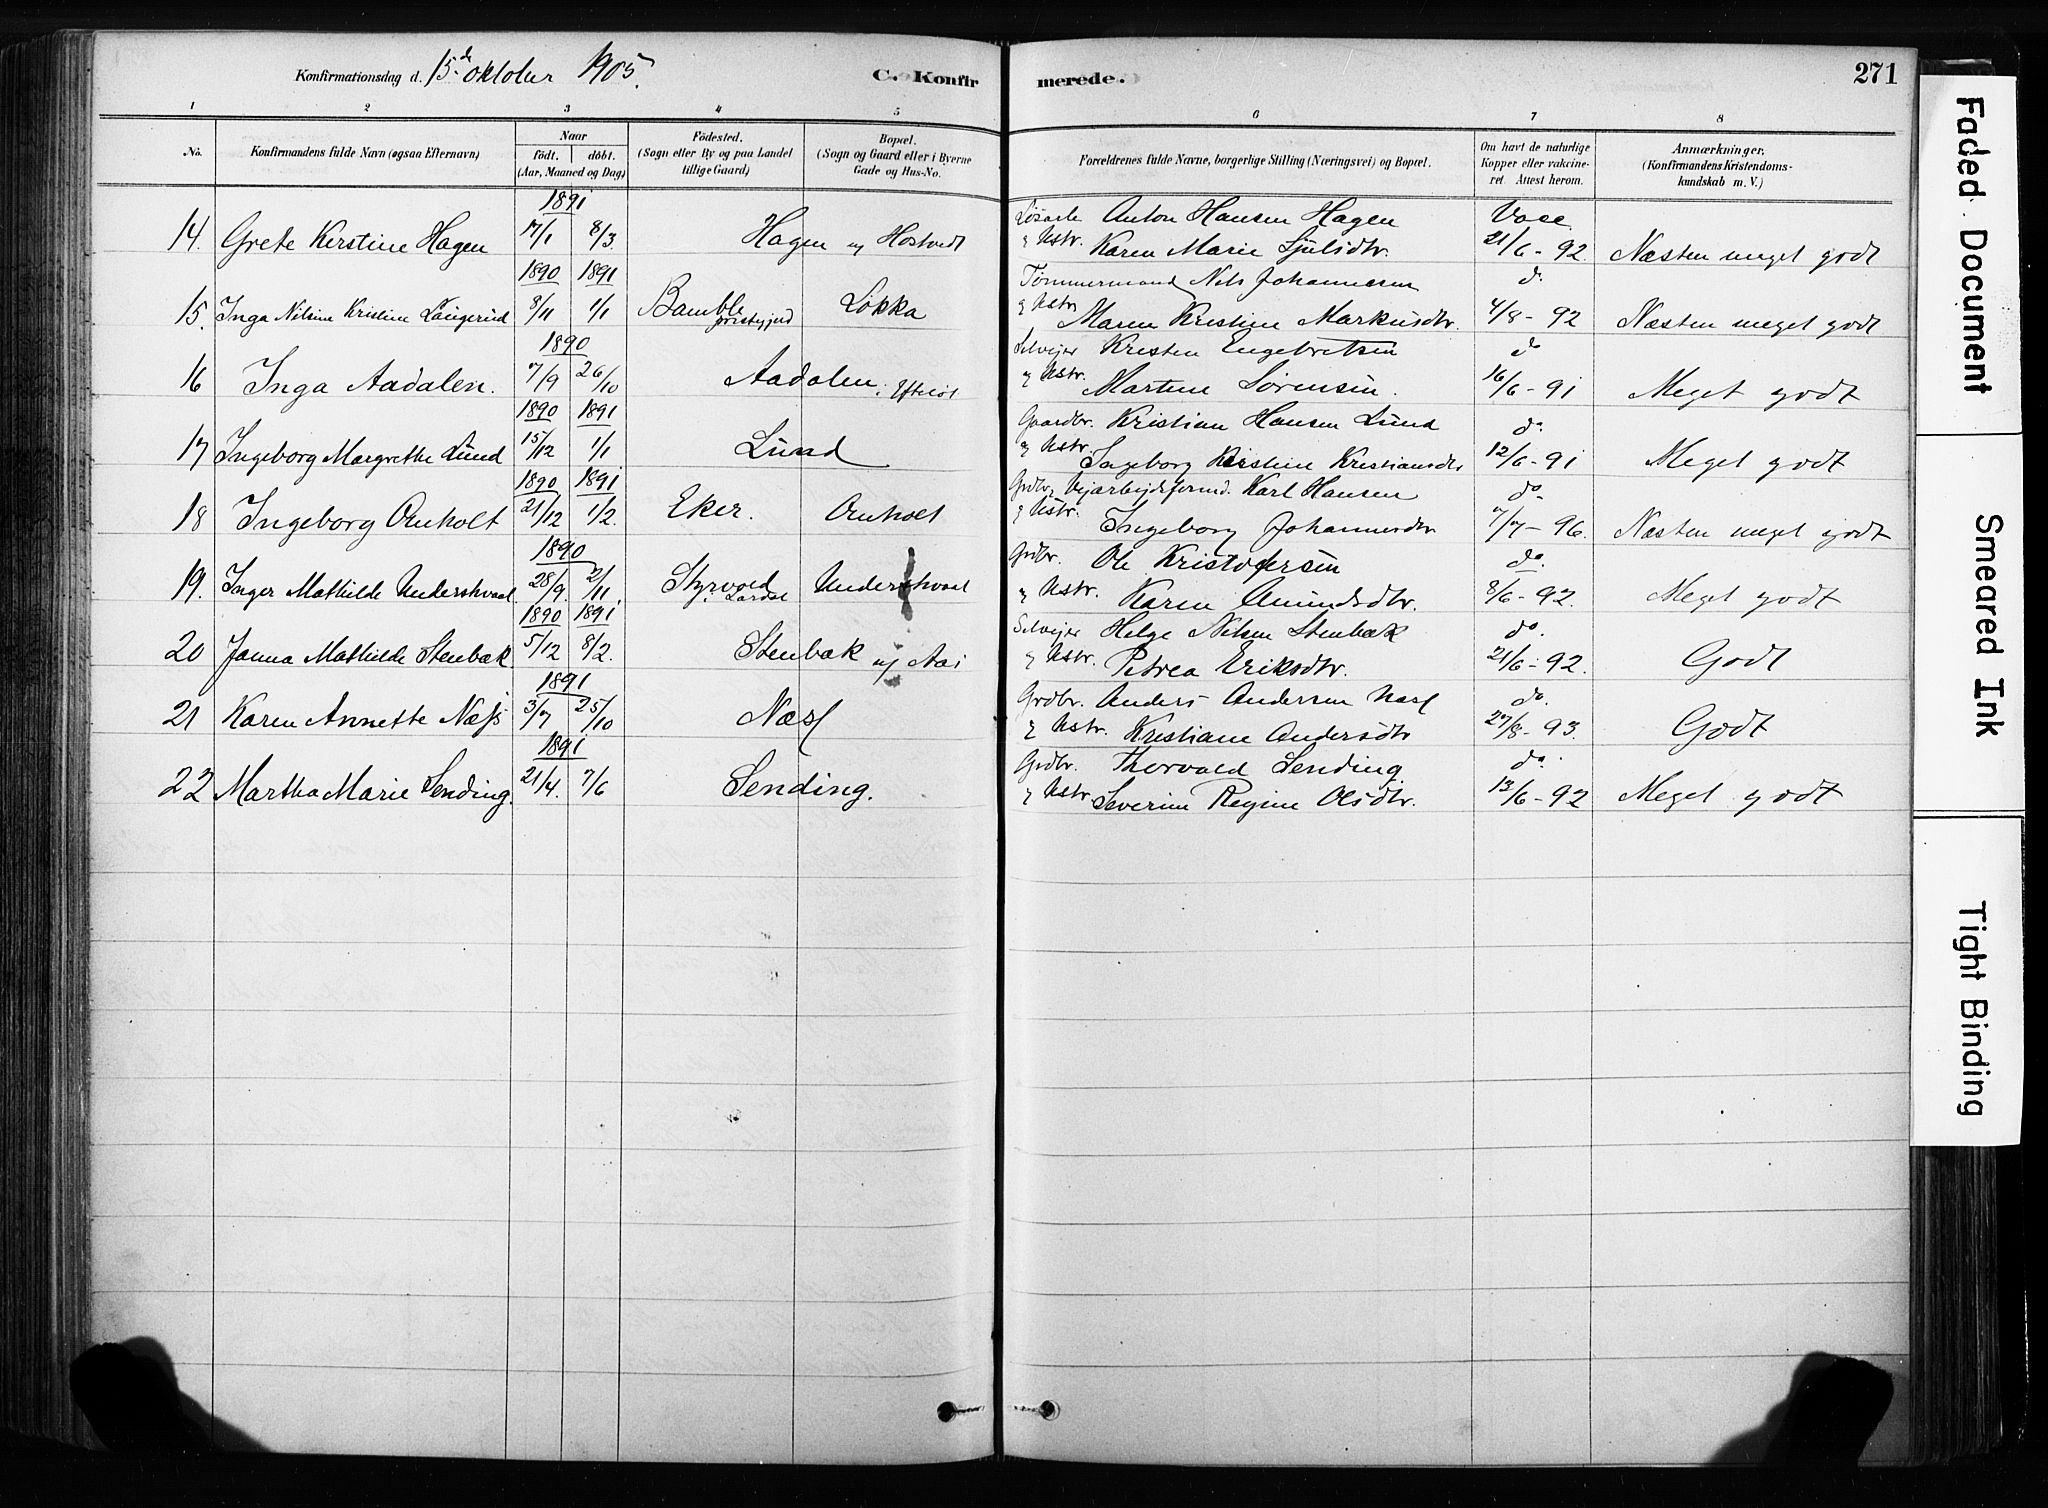 Konfirmationsdag d. 15de oktober 1905.
C. Konfir
merede.
271
1 2 3 4 5 6 7 8
No.
Konfirmandens fulde Navn (ogsaa Efternavn)
Naar
födt. döbt.
(Aar, Maaned og Dag)
Födested.
(Sogn eller By og paa Landet
tillige Gaard)
Bopæl.
(Sogn og Gaard eller i Byerne
Gade og Hus-No.
Forældrenes fulde Navne, borgerlige Stilling (Næringsvei) og Bopæl.
Om havt de naturlige
Kopper eller vakcine-
ret. Attest herom.
Anmærkninger,
(Konfirmandens Kristendoms-
kundskab m. V.)
1891 Anton Hansen Hagen Vacc.
14. Grete Kerstine Hagen 17/1 8/3. Hagen og Hostvedt g Hstr. Karen Marie Ljulsdtr. 21/6-92 Næsten meget godt
1890 1891 Tømmermand Nils Johannesen do
15. Inga Nilsine Kristine Laugerud 8/11 1/1 Bamble præstegjeld Løkka g Hstr Maren Kristine Markusdtr. 4/8-92 Næsten meget godt
1890 Selvejer Kristen Engebretsen do
16 Inga Aadalen. 7/9 26/10 Aadalen i Efteløt g Hstr. Martine Sørensen. 16/6-91 Meget godt
1890 1891 Gaardbr. Kristian Hansen Lund do
17 Ingeborg Margrethe Lund 15/12 1/1 Lund og Hstr. Ingeborg Kirstine Kristiansdtr 12/6-91 Meget godt
1890 1891 Grdbr g Vejarbejdsformd. Karl Hansen do
18 Ingeborg Omholt 21/12 1/2. Eker. Omholt g Hstr. Ingeborg Johannesdtr 7/7-96. Næsten meget godt
1890 Grdbr. Ole Kristofersen do.
19. Inger Mathilde Underskvaal 28/9. 2/11. Styrvold i Lardal Underskvaal g Hstr. Karen Amundsdtr. 8/6-92. Meget godt
1890 1891 Selvejer Helge Nilsen Stenbæk do.
20 Janna Mathilde Stenbæk 5/12 8/2. Stenbæk og Aas g Hstr. Petrea Eriksdtr. 21/6-92. Godt
1891 Grdbr. Anders Andersen Næss do.
21 Karen Annette Næss 3/7 25/10 Næss g Hstr. Kristiane Andersdtr 27/8-93. Godt
1891 Grdbr. Thorvald Sending do.
22 Martha Marie Sending. 21/4. 7/6 Sending. g Hstr Severine Regine Olsdtr. 13/6-92 Meget godt
Faded Document
Smeared Ink
Tight Binding